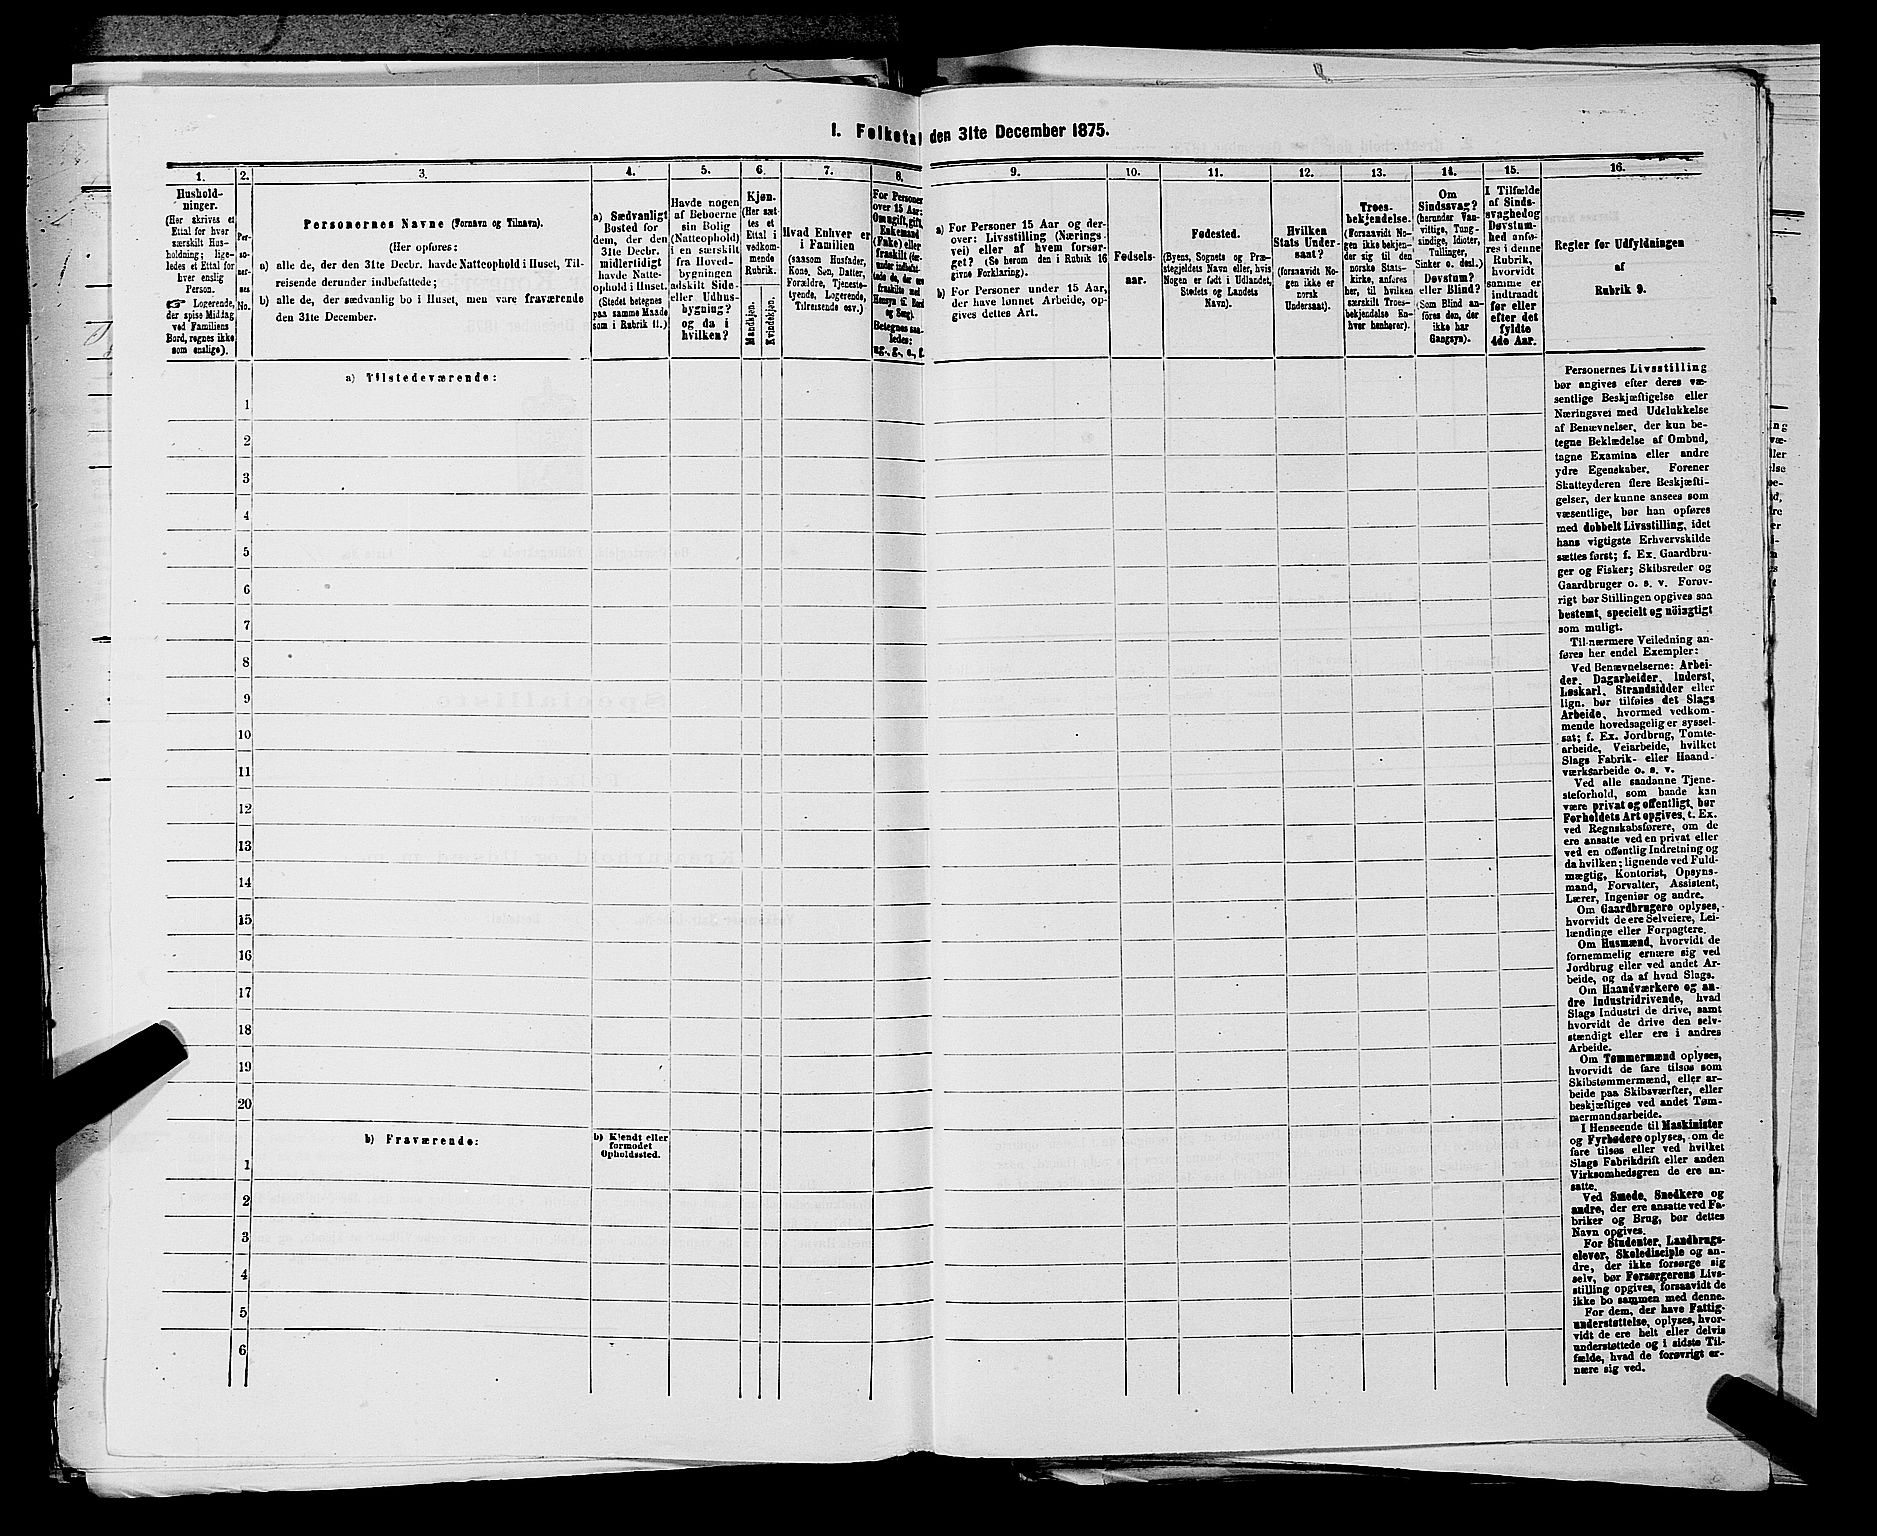 1. Folketal den 31te December 1875.
1.
Hushold-
ninger.
(Her skrives et
Ettal for hver
særskilt Hus-
holdning; lige-
ledes et Ettal for
hver enslig
Person.
☞ Logerende,
der spise Middag
ved Familiens
Bord, regnes ikke
som enslige).
2.
Per-
so-
ner-
nes
No.
3.
Personernes Navne (Fornavn og Tilnavn).
(Her opføres:
a) alle de, der den 31te Decbr. havde Natteophold i Huset, Til-
reisende derunder indbefattede;
b) alle de, der sædvanlig bo i Huset, men vare fraværende
den 31te December.
4.
a) Sædvanligt
Bosted for
dem, der den
31te Decbr.
midlertidigt
havde Natte-
ophold i Huset.
(Stedet betegnes
paa samme Maade
som i Rubrik 11.)
5.
Havde nogen
af Beboerne
sin Bolig
(Natteophold)
i en særskilt
fra Hoved-
bygningen
adskilt Side-
eller Udhus-
bygning?
og da i
hvilken?
6.
Kjøn.
(Her sæt-
tes et
Ettal i
vedkom-
mende
Rubrik.
Mandkjøn.
Kvindekjøn.
7.
Hvad Enhver er
i Familien
(saasom Husfader,
Kone, Søn, Datter,
Forældre, Tjeneste-
tyende, Logerende,
Tilreisende osv.)
8.
For Personer
over 15 Aar:
Om ugift, gift,
Enkemand
(Enke) eller
fraskilt (der-
under indbefat-
tede de, der ere
fraskilte med
Hensyn til Bord
og Seng).
Betegnes saa-
ledes:
ug., g., e., f.
9.
a) For Personer 15 Aar og der-
over: Livsstilling (Nærings-
vei) eller af hvem forsør-
get? (Se herom den i Rubrik 16
givne Forklaring).
b) For Personer under 15 Aar,
der have lønnet Arbeide, op-
gives dettes Art.
10.
Fødsels-
aar.
11.
Fødested.
(Byens, Sognets og Præ-
stegjeldets Navn eller, hvis
Nogen er født i Udlandet,
Stedets og Landets
Navn).
12.
Hvilken
Stats Under-
saat?
(forsaavidt No-
gen ikke er
norsk
Undersaat).
13.
Troes-
bekjendelse.
(Forsaavidt No-
gen ikke bekjen-
der sig til den
norske Stats-
kirke, anføres
her, til hvilken
særskilt Troes-
bekjendelse En-
hver henhører).
14.
Om
Sindssvag?
(herunder Van-
vittige, Tung-
sindige, Idioter,
Tullinger,
Sinker o. desl.)
Døvstum?
eller Blind?
(Som Blind an-
føres den, der
ikke har
Gangsyn).
15.
I Tilfælde
af Sinds-
svaghedog
Døvstum-
hed anfø-
res i denne
Rubrik,
hvorvidt
samme er
indtraadt
før eller
efter det
fyldte
4de Aar.
16.
Regler for Udfyldningen
af
Rubrik 9.
a) Tilstedeværende:
1
2
3
4
5
6
7
8
9
10
11
12
13
14
15
16
17
18
19
20
b) Fraværende:
b) Kjendt eller
formodet
Opholdssted.
1
2
3
4
5
6
Personernes Livsstilling
bør angives efter deres væ-
sentlige Beskjæftigelse eller
Næringsvei med Udelukkelse
af Benævnelser, der kun be-
tegne Beklædelse af Ombud,
tagne Examina eller andre
ydre Egenskaber. Forener
Skatteyderen flere Beskjæfti-
gelser, der kunne ansees som
væsentlige, bør han opføres
med dobbelt Livsstilling, idet
hans vigtigste Erhvervskilde
sættes først; f. Ex. Gaardbru-
ger og Fisker; Skibsreder og
Gaardbruger o. s. v. Forøv-
rigt bør Stillingen opgives saa
bestemt, specielt og nöiagtigt
som muligt.
Til nærmere Veiledning an-
føres her endel Exempler:
Ved Benævnelserne: Arbei-
der, Dagarbeider, Inderst,
Løskarl, Strandsidder eller
lign. bør tilføies det Slags
Arbeide, hvormed vedkom-
mende hovedsagelig er syssel-
sat; f. Ex. Jordbrug, Tomte-
arbeide, Veiarbeide, hvilket
Slags Fabrik- eller Haand-
værksarbeide o. s. v.
Ved alle saadanne Tjene-
steforhold, som baade kan
være privat og offentligt, bør
Forholdets Art opgives, t. Ex.
ved Regnskabsførere, om de
ere ansatte ved en privat eller
ved en offentlig Indretning og
da hvilken; lignende ved Fuld-
mægtig, Kontorist, Opsyns-
mand, Forvalter, Assistent,
Lærer, Ingeniør og andre.
Om Gaardbrugere oplyses,
hvorvidt de ere Selveiere, Lei-
lændinge eller Forpagtere.
Om Husmænd, hvorvidt de
fornemmelig ernære sig ved
Jordbrug eller ved andet Ar-
beide, og da af hvad Slags.
Om Haandværkere og an-
dre Industridrivende, hvad
Slags Industri de drive, samt
hvorvidt de drive den selv-
stændigt eller ere i andres
Arbeide.
Om Tømmermænd oplyses,
hvorvidt de fare tilsøs som
Skibstømmermænd, eller ar-
beide paa Skibsværfter, eller
beskjæftiges ved andet Tøm-
mermandsarbeide.
I Henseende til Maskinister
og Fyrbødere oplyses, om de
fare tilsøs eller ved hvilket
Slags Fabrikdrift eller anden
Virksomhedsgren de ere an-
satte.
Ved Smede, Snedkere og
andre, der ere ansatte ved Fa-
briker og Brug, bør dettes
Navn opgives.
For Studenter, Landbrugs-
elever, Skoledisciple og an-
dre, der ikke forsørge sig
selv, bør Forsørgerens Livs-
stilling opgives, forsaavidt de
ikke bo sammen med denne.
For dem, der have Fattig-
understøttelse, oplyses, hvor-
vidt de ere helt eller delvis
understøttede og i sidste Til-
fælde, hvad de forøvrigt er-
nære sig ved.